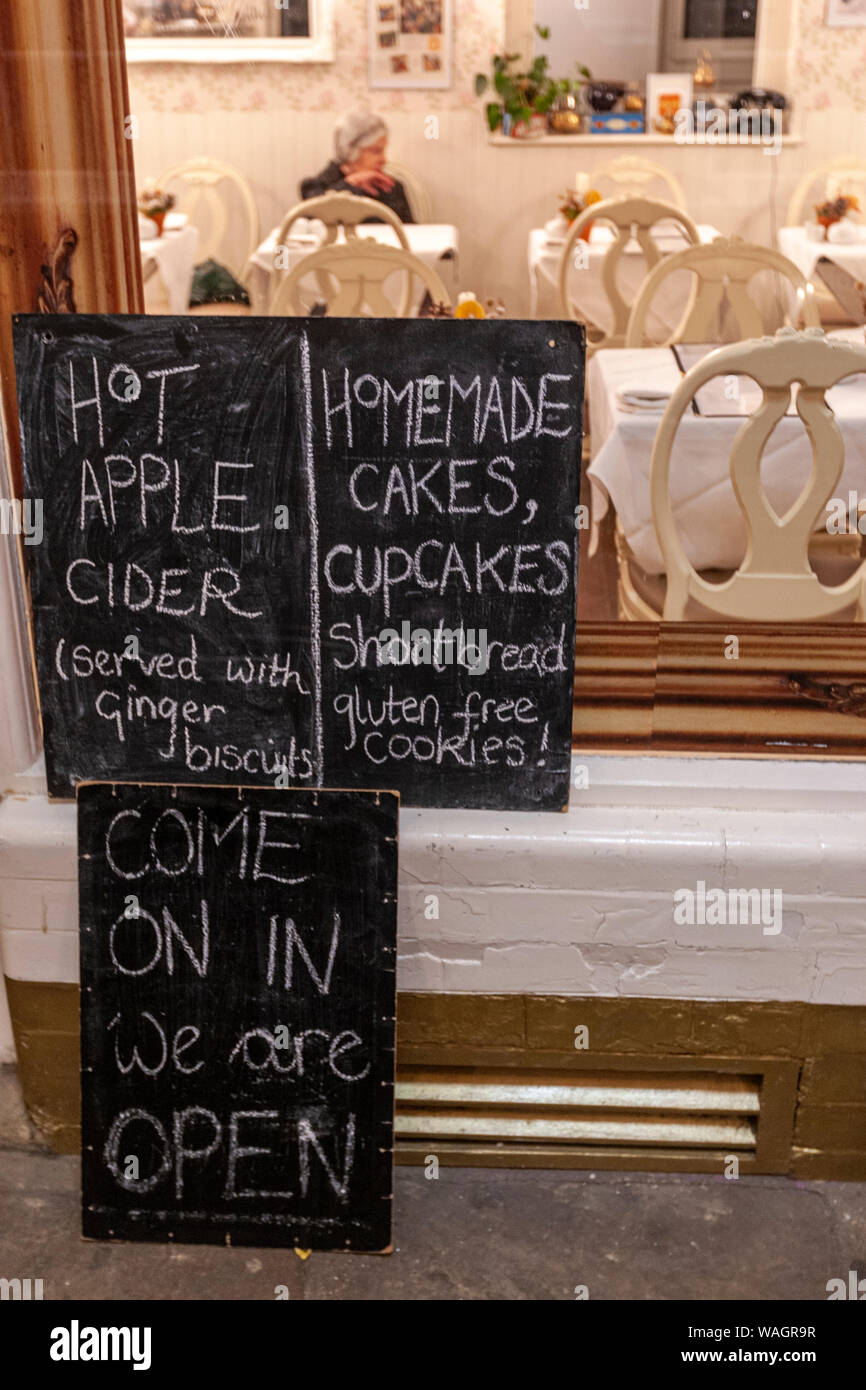 HOT
APPLE
CIDER
(served with
Ginger
biscuits
HOMEMADE
CAKES,
CUPCAKES
Shortbread
gluten free
cookies!
COME
ON IN
we are
OPEN
alamy
Image ID: WAGR9R
www.alamy.com